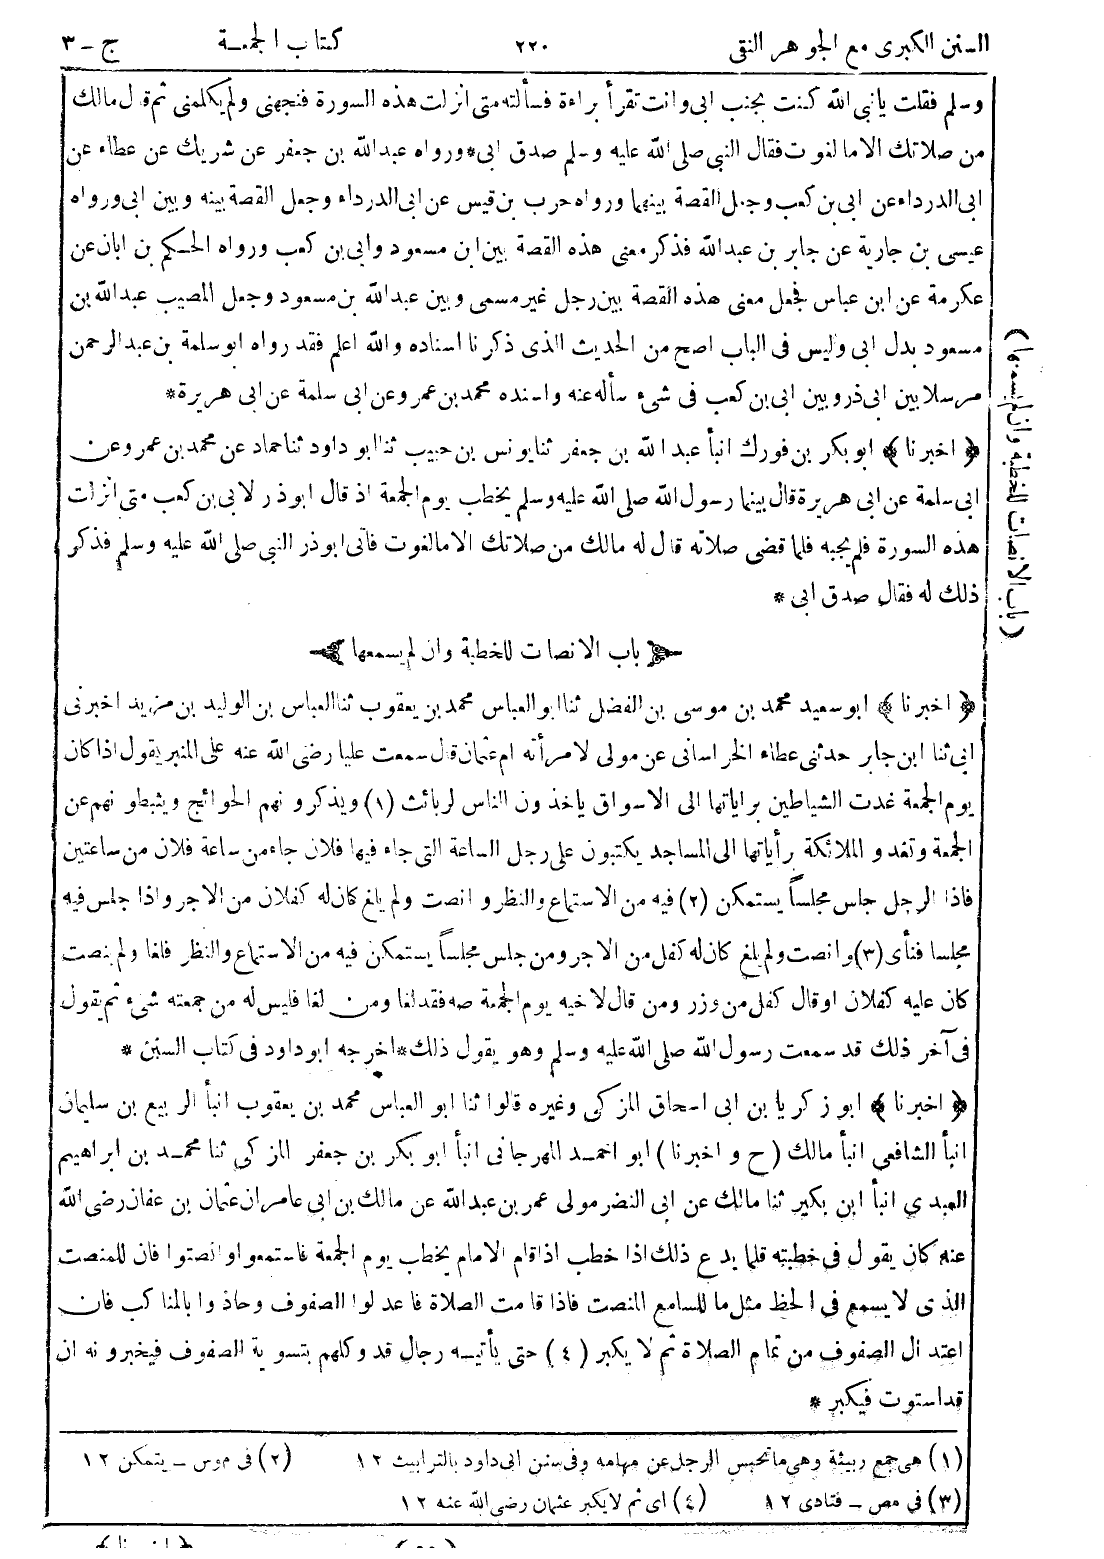 السنن الكبرى مع الجوهر النقى ٢٢٠ كتاب الجمعة ج - ٣
وسلم فقلت يانبى الله كنت بجنب ابى وانت تقرأ براءة فسألته متى انزلت هذه السورة فنجهنى ولم يكلمنى ثم قال مالك
من صلاتك الا مالغوت فقال النبى صلى الله عليه وسلم صدق ابى * ورواه عبدالله بن جعفر عن شريك عن عطاء عن
ابى الدرداء عن ابى بن كعب وجعل القصة بينهما ورواه حرب بن قيس عن ابى الدرداء وجعل القصة بينه وبين ابى ورواه
عيسى بن جارية عن جابر بن عبدالله فذكر معنى هذه القصة بين ابن مسعود وابى بن كعب ورواه الحكم بن ابان عن
عكرمة عن ابن عباس فجعل معنى هذه القصة بين رجل غير مسمى وبين عبدالله بن مسعود وجعل المصيب عبدالله بن
مسعود بدل ابى وليس فى الباب اصح من الحديث الذى ذكرنا اسناده والله اعلم فقد رواه ابو سلمة بن عبدالرحمن
مرسلا بين ابى ذر وبين ابى بن كعب فى شىء سأله عنه واسنده محمد بن عمرو عن ابى سلمة عن ابى هريرة *
﴿ اخبرنا ﴾ ابو بكر بن فورك انبأ عبد الله بن جعفر ثنا يونس بن حبيب ثنا ابو داود ثنا حماد عن محمد بن عمرو عن
ابى سلمة عن ابى هريرة قال بينما رسول الله صلى الله عليه وسلم يخطب يوم الجمعة اذ قال ابوذر لابى بن كعب متى انزلت
هذه السورة فلم يجبه فلما قضى صلاته قال له مالك من صلاتك الا مالغوت فأتى ابوذر النبى صلى الله عليه وسلم فذكر
ذلك له فقال صدق ابى *
باب الانصات للخطبة وان لم يسمعها
(باب الانصات للخطبة وان لم يسمعها)
﴿ اخبرنا ﴾ ابو سعيد محمد بن موسى بن الفضل ثنا ابو العباس محمد بن يعقوب ثنا العباس بن الوليد بن مزيد اخبرنى
ابى ثنا ابن جابر حدثنى عطاء الخراسانى عن مولى لامرأته ام عثمان قال سمعت عليا رضى الله عنه على المنبر يقول اذا كان
يوم الجمعة غدت الشياطين براياتها الى الاسواق ياخذون الناس لربائث (١) ويذكرونهم الحوائج ويثبطونهم عن
الجمعة وتغدو الملائكة برأياتها الى المساجد يكتبون على رجل الساعة التى جاء فيها فلان جاء من ساعة فلان من ساعتين
فاذا الرجل جلس مجلساً يستمكن (٢) فيه من الاستماع والنظر وانصت ولم يلغ كان له كفلان من الاجر واذا جلس فيه
مجلسا فنأى (٣) وانصت ولم يلغ كان له كفل من الاجر ومن جلس مجلساً يستمكن فيه من الاستماع والنظر فلغا ولم ينصت
كان عليه كفلان اوقال كفل من وزر ومن قال لاخيه يوم الجمعة صه فقد لغا ومن لغا فليس له من جمعته شىء ثم يقول
فى آخر ذلك قد سمعت رسول الله صلى الله عليه وسلم وهو يقول ذلك * اخرجه ابو داود فى كتاب السنن *
﴿ اخبرنا ﴾ ابو زكريا بن ابى اسحاق المزكى وغيره قالوا ثنا ابو العباس محمد بن يعقوب انبأ الربيع بن سليمان
انبأ الشافعى انبأ مالك (ح واخبرنا) ابو احمد المهرجانى انبأ ابو بكر بن جعفر المزكى ثنا محمد بن ابراهيم
العبدى انبأ ابن بكير ثنا مالك عن ابى النضر مولى عمر بن عبدالله عن مالك بن ابى عامر ان عثمان بن عفان رضى الله
عنه كان يقول فى خطبته قلما يدع ذلك اذا خطب اذا قام الامام يخطب يوم الجمعة فاستمعوا وانصتوا فان للمنصت
الذى لا يسمع فى الحظ مثل ما للسامع المنصت فاذا قامت الصلاة فاعدلوا الصفوف وحاذوا بالمناكب فان
اعتدال الصفوف من تمام الصلاة ثم لا يكبر (٤) حتى يأتيه رجال قد وكلهم بتسوية الصفوف فيخبرونه ان
قد استوت فيكبر *
(١) هى جمع ربيثة وهى ما تحبس الرجل عن مهامه وفى سنن ابى داود بالترابيث ١٢ (٢) فى موس - يتمكن ١٢
(٣) فى مص - فتادى ١٢ (٤) اى ثم لا يكبر عثمان رضى الله عنه ١٢